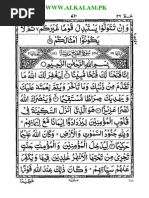 WWW.ALKALAM.PK
وَإِنْ تَتَوَلَّوْا يَسْتَبْدِلْ قَوْمًا غَيْرَكُمْ ثُمَّ لَا
يَكُونُوا أَمْثَالَكُمْ
بِسْمِ اللهِ الرَّحْمٰنِ الرَّحِيْمِ
إِنَّا فَتَحْنَا لَكَ فَتْحًا مُّبِينًا لِّيَغْفِرَ لَكَ اللهُ مَا
تَقَدَّمَ مِنْ ذَنْبِكَ وَمَا تَأَخَّرَ وَيُتِمَّ نِعْمَتَهُ عَلَيْكَ
وَيَهْدِيَكَ صِرَاطًا مُّسْتَقِيمًا وَّيَنْصُرَكَ اللهُ نَصْرًا
عَزِيزًا هُوَ الَّذِي أَنْزَلَ السَّكِينَةَ فِي قُلُوبِ
الْمُؤْمِنِينَ لِيَزْدَادُوا إِيمَانًا مَّعَ إِيمَانِهِمْ وَلِلّٰهِ جُنُودُ
السَّمٰوٰتِ وَالْأَرْضِ وَكَانَ اللهُ عَلِيمًا حَكِيمًا
لِّيُدْخِلَ الْمُؤْمِنِينَ وَالْمُؤْمِنٰتِ جَنّٰتٍ تَجْرِي
مِنْ تَحْتِهَا الْأَنْهٰرُ خٰلِدِينَ فِيهَا وَيُكَفِّرَ
عَنْهُمْ سَيِّاٰتِهِمْ وَكَانَ ذٰلِكَ عِنْدَ اللهِ فَوْزًا
عَظِيمًا